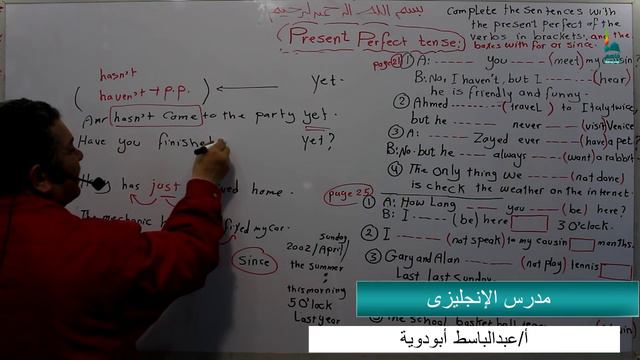 بسم الله الرحمن الرحيم
Present Perfect tense:
hasn't
haven't → P.P.
yet.
Amr hasn't come to the party yet.
Have you finished
yet?
has just
home.
The mechanic
my car.
Since
Sunday
2002/April/
the summer
this morning
5 O'lock
Last year
Complete the sentences with
the present perfect of the
verbs in brackets, and the
boxes with for or since.
page 21
① A: you (meet) my cousin?
B: No, I haven't, but I (hear)
he is friendly and funny.
② Ahmed (travel) to Italy twice,
but he never (visit) Venice
③ A: Zayed ever (have) a pet?
B: No. but he always (want) a rabbit.
④ The only thing we (not done)
is check the weather on the internet.
page 25
① A: How Long you (be) here?
B: I (be) here 3 O'clock.
② I (not speak) to my cousin months.
③ Gary and Alan (not play) tennis
Last Sunday.
The school basketball team
مدرس الإنجليزى
أ/عبدالباسط أبودوية